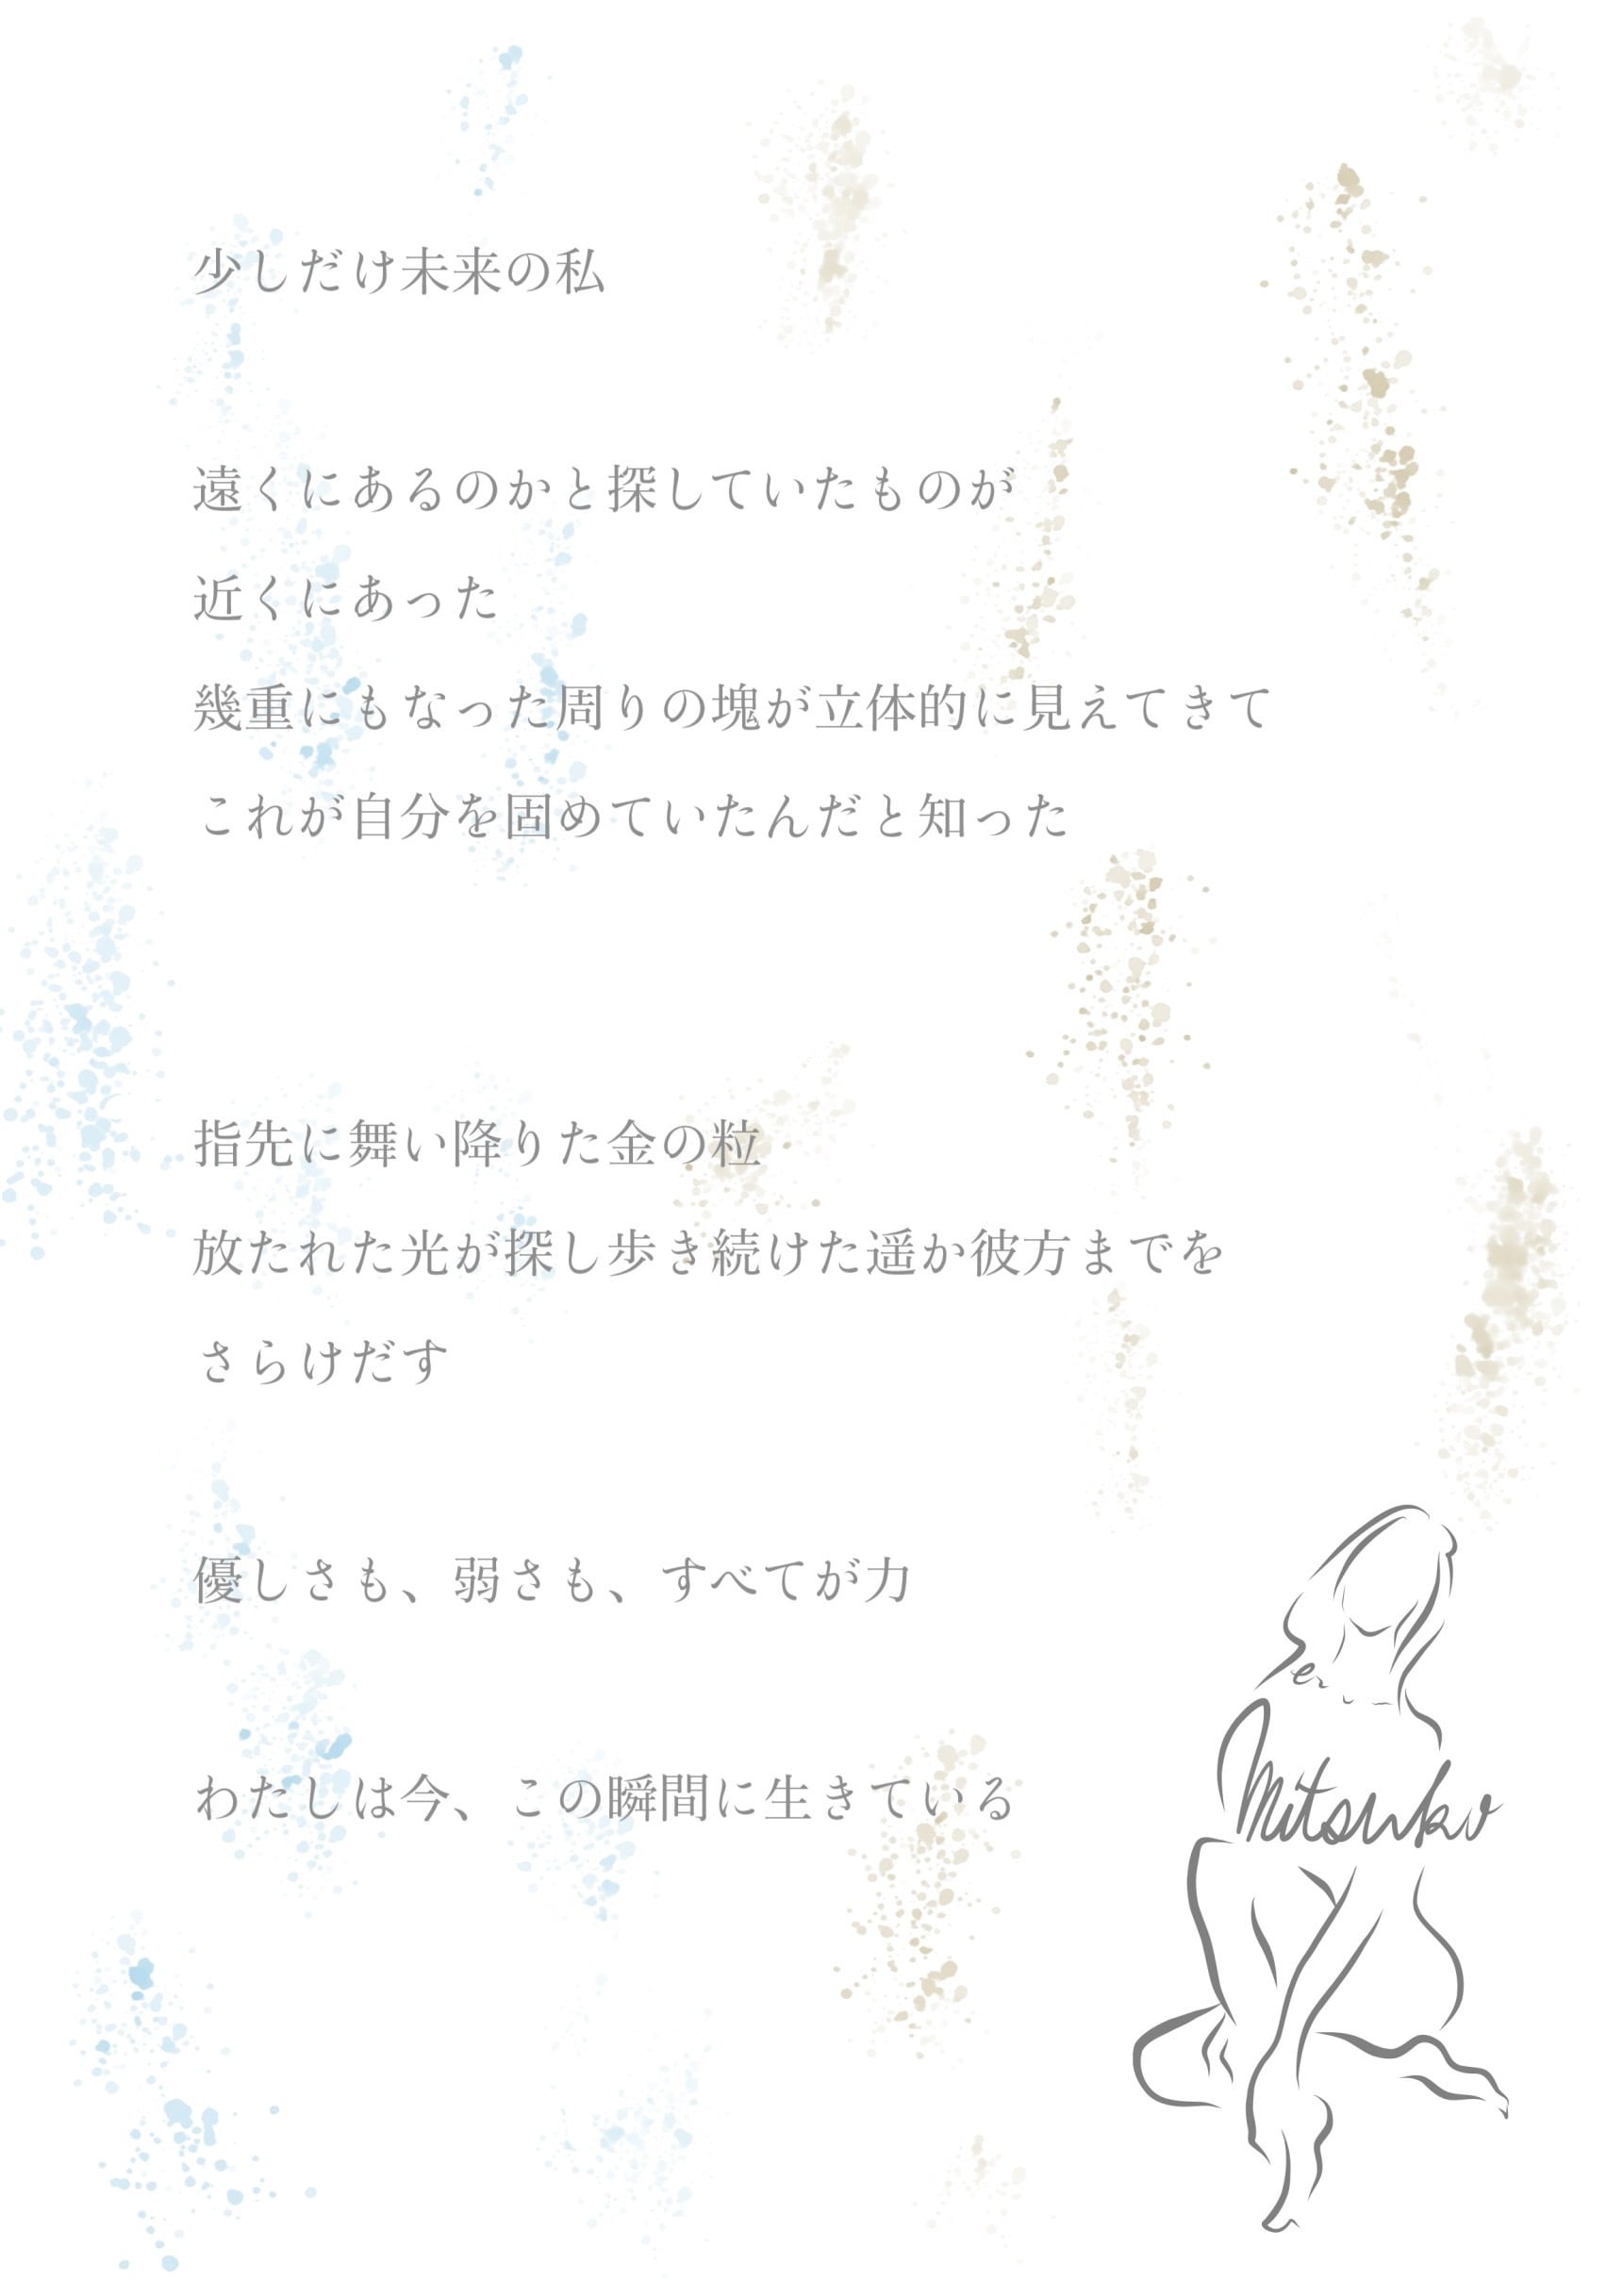 少しだけ未来の私
遠くにあるのかと探していたものが
近くにあった
幾重にもなった周りの塊が立体的に見えてきて
これが自分を固めていたんだと知った
指先に舞い降りた金の粒
放たれた光が探し歩き続けた遥か彼方までを
さらけだす
優しさも、弱さも、すべてが力
わたしは今、この瞬間に生きている
Mitsuko